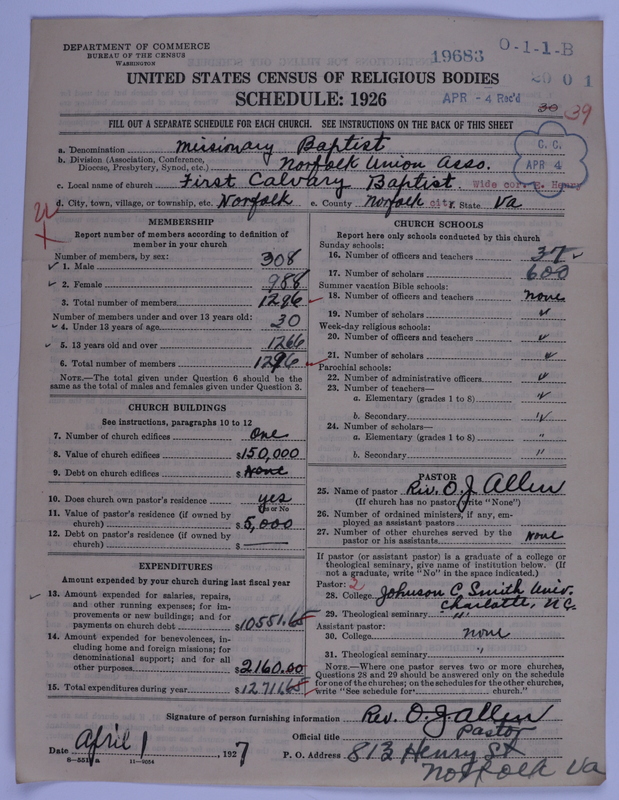 DEPARTMENT OF COMMERCE
BUREAU OF THE CENSUS
WASHINGTON
19683
O-1-1-B
UNITED STATES CENSUS OF RELIGIOUS BODIES
2001
SCHEDULE: 1926
APR -4 Rec'd
30 39
FILL OUT A SEPARATE SCHEDULE FOR EACH CHURCH. SEE INSTRUCTIONS ON THE BACK OF THIS SHEET
C. C.
APR 4
a. Denomination Missionary Baptist
b. Division (Association, Conference,
Diocese, Presbytery, Synod, etc.) Norfolk Union Asso.
c. Local name of church First Calvary Baptist. Wide cor. E. Henry
d. City, town, village, or township, etc. Norfolk e. County Norfolk city f. State Va
MEMBERSHIP
Report number of members according to definition of
member in your church
Number of members, by sex:
1. Male 308
2. Female 988
3. Total number of members 1296
Number of members under and over 13 years old:
4. Under 13 years of age 30
5. 13 years old and over 1266
6. Total number of members 1296
NOTE.—The total given under Question 6 should be
same as the total of males and females given under Question 3.
CHURCH BUILDINGS
See instructions, paragraphs 10 to 12
7. Number of church edifices One
8. Value of church edifices $150,000
9. Debt on church edifices $None
10. Does church own pastor's residence yes
Yes or No
11. Value of pastor's residence (if owned by
church) $5,000
12. Debt on pastor's residence (if owned by
church) $
EXPENDITURES
Amount expended by your church during last fiscal year
13. Amount expended for salaries, repairs,
and other running expenses; for im-
provements or new buildings; and for
payments on church debt $10551.65
14. Amount expended for benevolences, in-
cluding home and foreign missions; for
denominational support; and for all
other purposes $2160.00
15. Total expenditures during year $12,711.65
CHURCH SCHOOLS
Report here only schools conducted by this church
Sunday schools:
16. Number of officers and teachers 37
17. Number of scholars 600
Summer vacation Bible schools:
18. Number of officers and teachers none
19. Number of scholars "
Week-day religious schools:
20. Number of officers and teachers "
21. Number of scholars "
Parochial schools:
22. Number of administrative officers "
23. Number of teachers—
a. Elementary (grades 1 to 8) "
b. Secondary "
24. Number of scholars—
a. Elementary (grades 1 to 8) "
b. Secondary "
PASTOR
25. Name of pastor Rev. O. J. Allen
(If church has no pastor, write "None")
26. Number of ordained ministers, if any, em-
ployed as assistant pastors
27. Number of other churches served by the
pastor or his assistants None
If pastor (or assistant pastor) is a graduate of a college or
theological seminary, give name of institution below. (If
not a graduate, write "No" in the space indicated.)
Pastor: 2
28. College Johnson C. Smith Univ.
Charlotte, N.C.
29. Theological seminary "
Assistant pastor:
30. College none
31. Theological seminary "
NOTE.—Where one pastor serves two or more churches,
Questions 28 and 29 should be answered only on the schedule
for one of the churches; on the schedules for the other churches,
write "See schedule for church."
Signature of person furnishing information Rev. O. J. Allen
Official title Pastor
Date April 1, 1927 P. O. Address 813 Henry St
Norfolk Va
11—9054